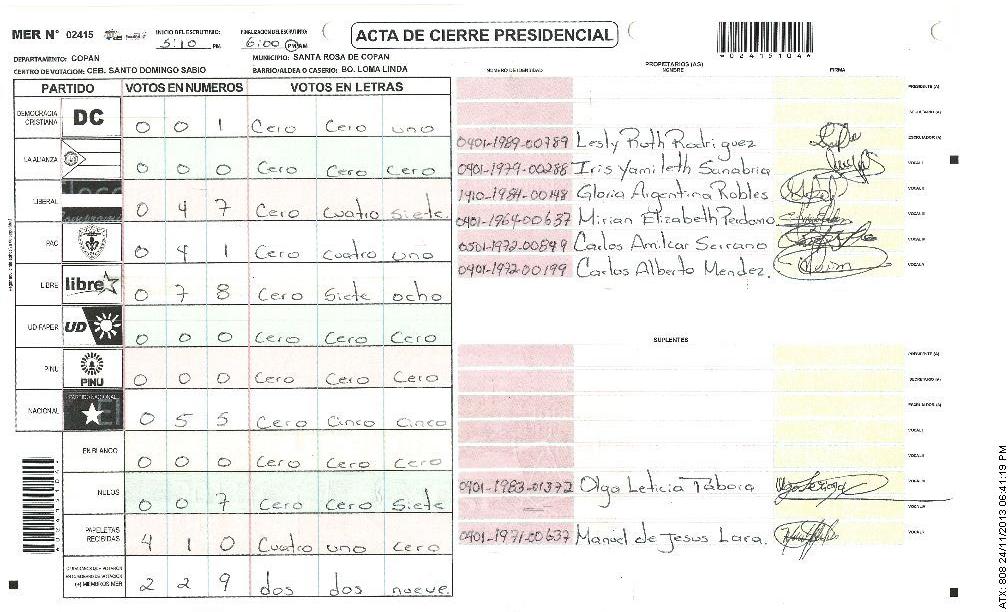 MER N° 02415
INICIO DEL ESCRUTINIO: 5:10 PM
FINALIZACION DEL ESCRUTINIO: 6:00 PM
ACTA DE CIERRE PRESIDENCIAL
*02415104*
DEPARTAMENTO: COPAN
MUNICIPIO: SANTA ROSA DE COPAN
CENTRO DE VOTACION: CEB. SANTO DOMINGO SABIO
BARRIO/ALDEA O CASERIO: BO. LOMA LINDA
PARTIDO VOTOS EN NUMEROS VOTOS EN LETRAS
DEMOCRACIA CRISTIANA DC 0 0 1 Cero Cero uno
LA ALIANZA 0 0 0 Cero Cero Cero
LIBERAL 0 4 7 Cero Cuatro Siete
PAC 0 4 1 Cero cuatro uno
LIBRE libre 0 7 8 Cero Siete ocho
UD FAPER UD 0 0 0 Cero Cero Cero
PINU PINU 0 0 0 Cero Cero Cero
NACIONAL PARTIDO NACIONAL 0 5 5 Cero Cinco Cinco
EN BLANCO 0 0 0 Cero Cero Cero
NULOS 0 0 7 Cero Cero Siete
PAPELETAS RECIBIDAS 4 1 0 Cuatro uno cero
(+) MIEMBROS MER 2 2 9 dos dos nueve
PROPIETARIOS (AS)
NUMERO DE IDENTIDAD NOMBRE FIRMA
PRESIDENTE (A)
SECRETARIO (A)
0401-1989-00789 Lesly Ruth Rodriguez ESCRUTADOR (A)
0401-1979-00288 Iris Yamileth Sanabria VOCAL I
1410-1984-00148 Gloria Argentina Robles VOCAL II
0401-1964-00637 Mirian Elizabeth Perdomo VOCAL III
0501-1972-00849 Carlos Amilcar Serrano VOCAL IV
0401-1972-00199 Carlos Alberto Mendez. VOCAL V
SUPLENTES
PRESIDENTE (A)
SECRETARIO (A)
ESCRUTADOR (A)
VOCAL I
VOCAL II
0401-1983-01372 Olga Leticia Tabora VOCAL III
VOCAL IV
0401-1971-00637 Manuel de Jesus Lara. VOCAL V
ATX: 808 24/11/2013 06:41:19 PM